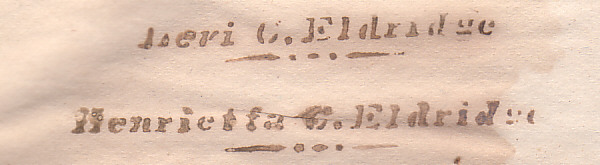 Levi C. Eldridge
Henrietta C. Eldridge